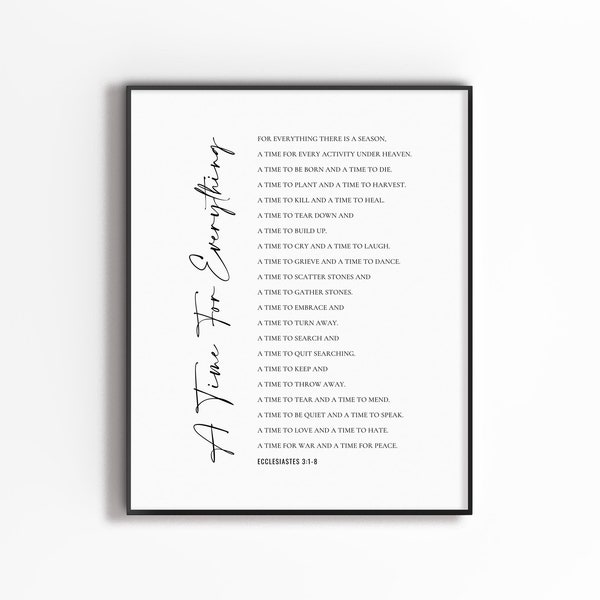 A Time For Everything
FOR EVERYTHING THERE IS A SEASON,
A TIME FOR EVERY ACTIVITY UNDER HEAVEN.
A TIME TO BE BORN AND A TIME TO DIE.
A TIME TO PLANT AND A TIME TO HARVEST.
A TIME TO KILL AND A TIME TO HEAL.
A TIME TO TEAR DOWN AND
A TIME TO BUILD UP.
A TIME TO CRY AND A TIME TO LAUGH.
A TIME TO GRIEVE AND A TIME TO DANCE.
A TIME TO SCATTER STONES AND
A TIME TO GATHER STONES.
A TIME TO EMBRACE AND
A TIME TO TURN AWAY.
A TIME TO SEARCH AND
A TIME TO QUIT SEARCHING.
A TIME TO KEEP AND
A TIME TO THROW AWAY.
A TIME TO TEAR AND A TIME TO MEND.
A TIME TO BE QUIET AND A TIME TO SPEAK.
A TIME TO LOVE AND A TIME TO HATE.
A TIME FOR WAR AND A TIME FOR PEACE.
ECCLESIASTES 3:1-8